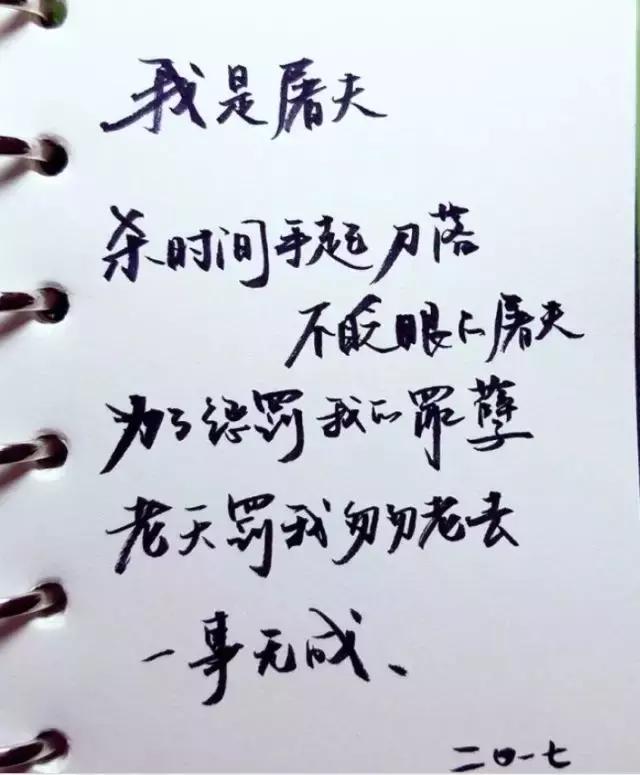 我是屠夫
杀时间手起刀落
不眨眼的屠夫
为了惩罚我的罪孽
老天罚我匆匆老去
一事无成、
二〇一七